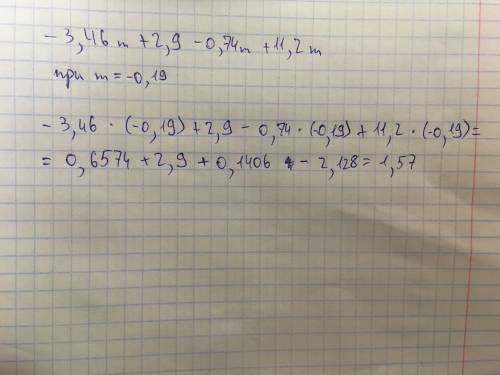 - 3,46m + 2,9 - 0,74m + 11,2m
при m = -0,19
- 3,46 · (-0,19) + 2,9 - 0,74 · (-0,19) + 11,2 · (-0,19) =
= 0,6574 + 2,9 + 0,1406 - 2,128 = 1,57